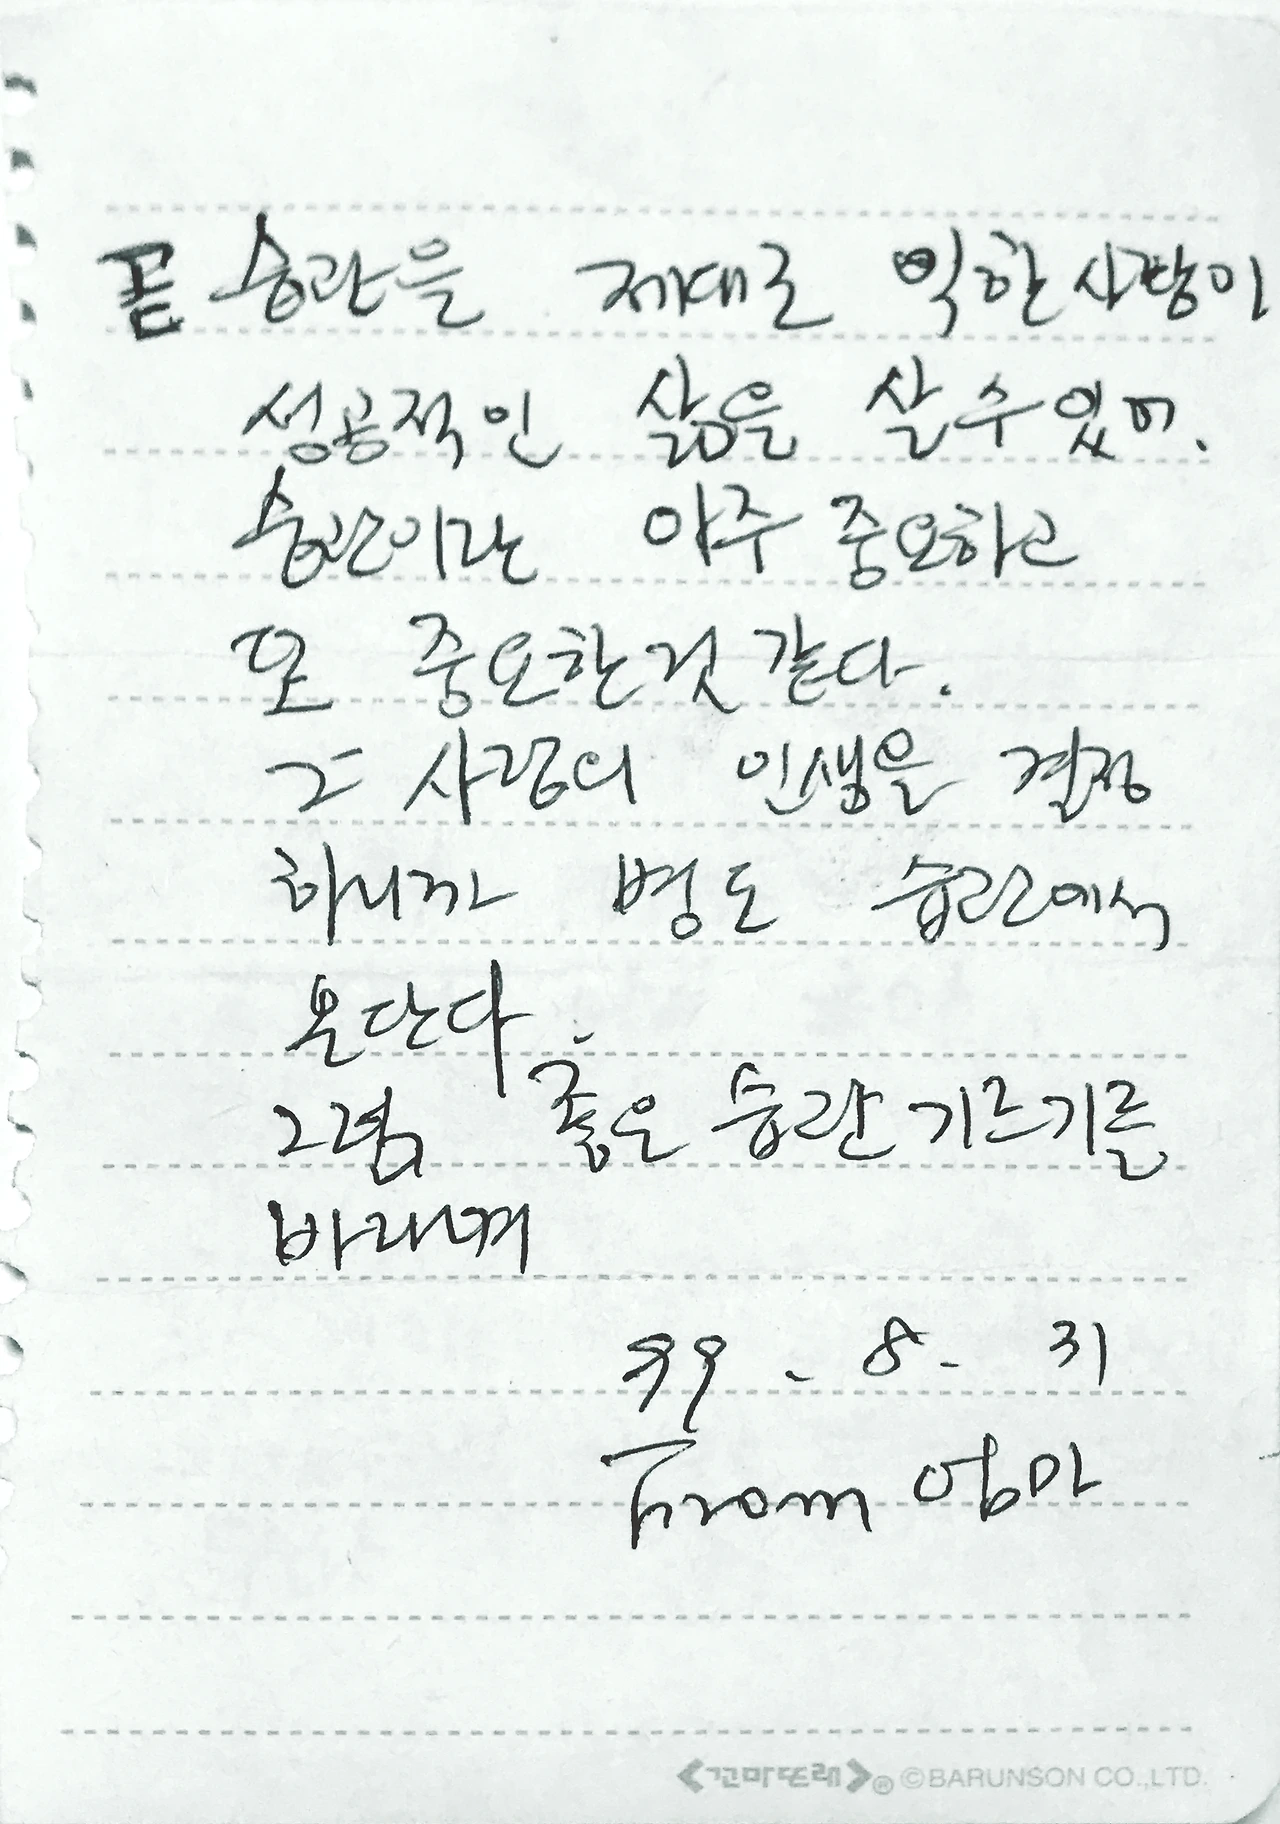 꼭 습관을 제대로 익한사람이
성공적인 삶을 살수있어.
습관이란 아주 중요하고
또 중요한것 같다.
그 사람의 인생을 결정
하니까 병도 습관에서
온단다.
그럼 좋은 습관 기르기를
바라며
99. 8. 31
From 엄마
<꼬마또래>® ©BARUNSON CO.,LTD.